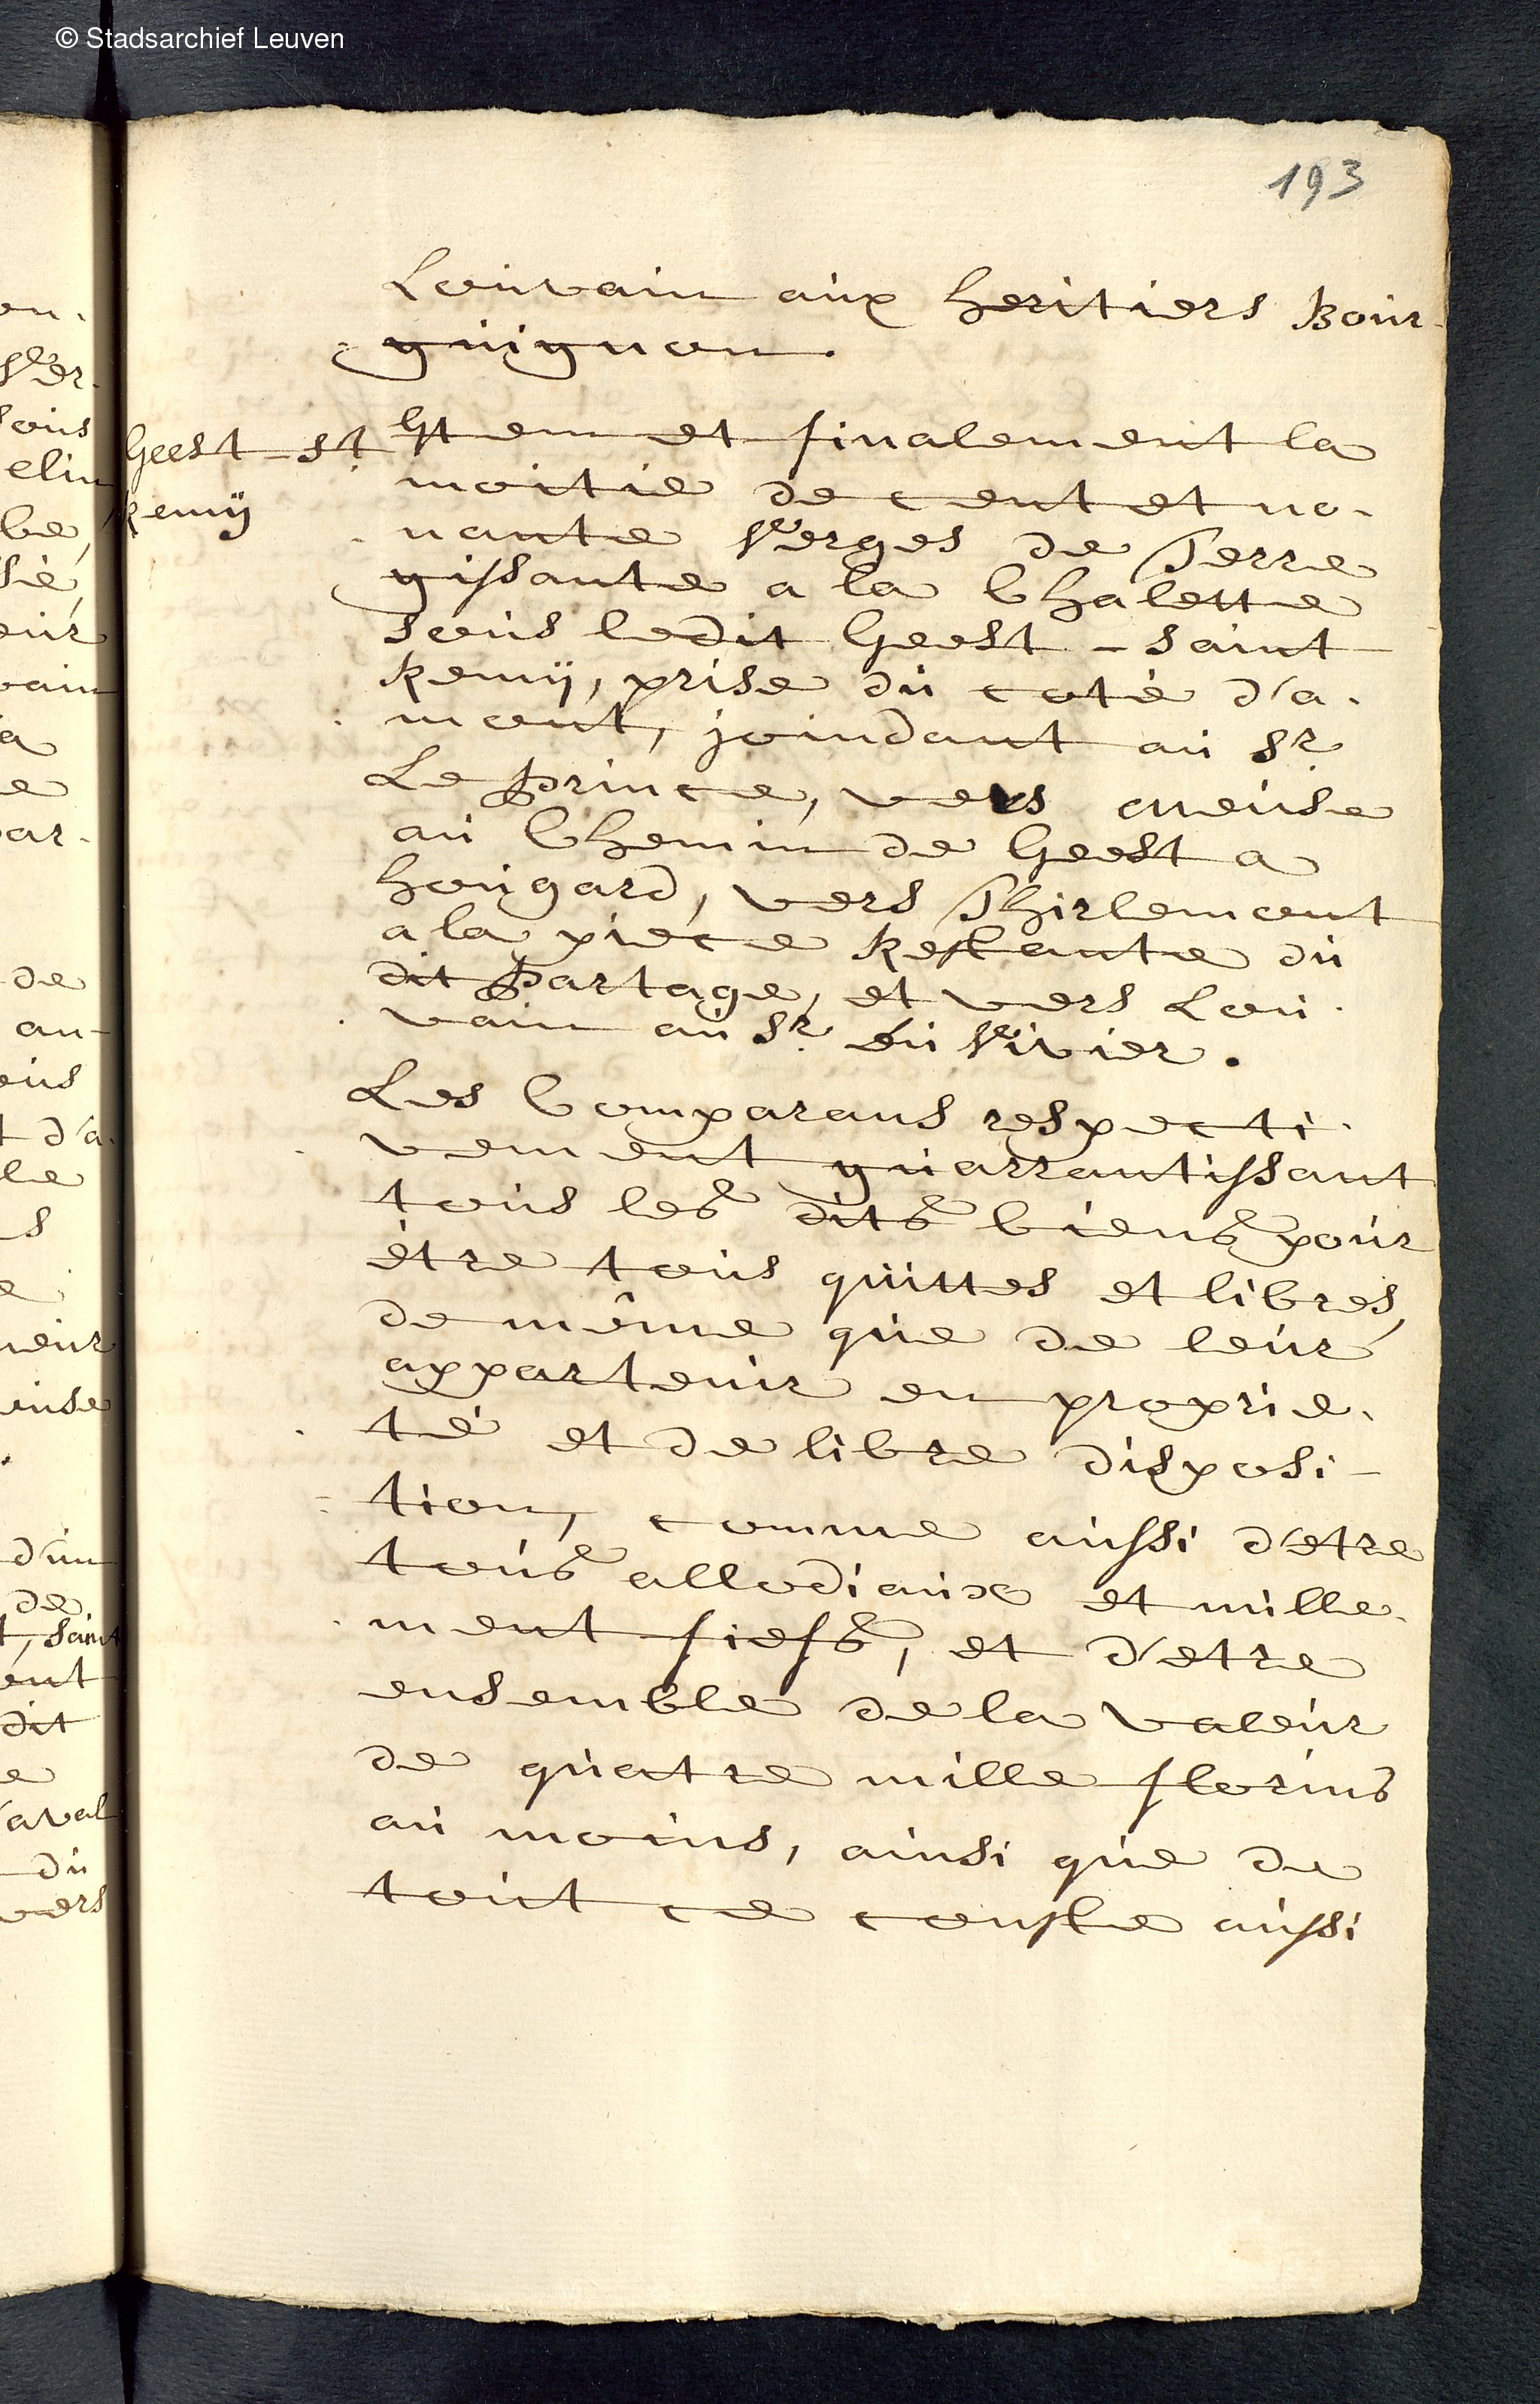 © Stadsarchief Leuven
193
Louvain aux heritiers Bour-
guignon.
Geest-St
Remÿ
Item et finalement la
moitie de cent et no-
nante Verges de Terre
gissante a la Chalette
sous ledit Geest-Saint
Remÿ, prise du coté d'a-
mont, joindant au Sr
Le Prince, vers Meuse
au Chemin de Geest a
Hougard, vers Thirlemont
a la piece Restante du
dit Partage, et vers Lou-
vain au Sr du Vivier.
Les Comparans respecti-
vement guarrantissant
tous les dits biens pour
être tous quittes et libres,
de même que de leur
appartenir en proprie-
té et de libre disposi-
tion, comme aussi d'etre
tous allodiaux et nulle-
ment fiefs, et d'etre
ensemble de la valeur
de quatre mille florins
au moins, ainsi que de
tout ce conste aussi